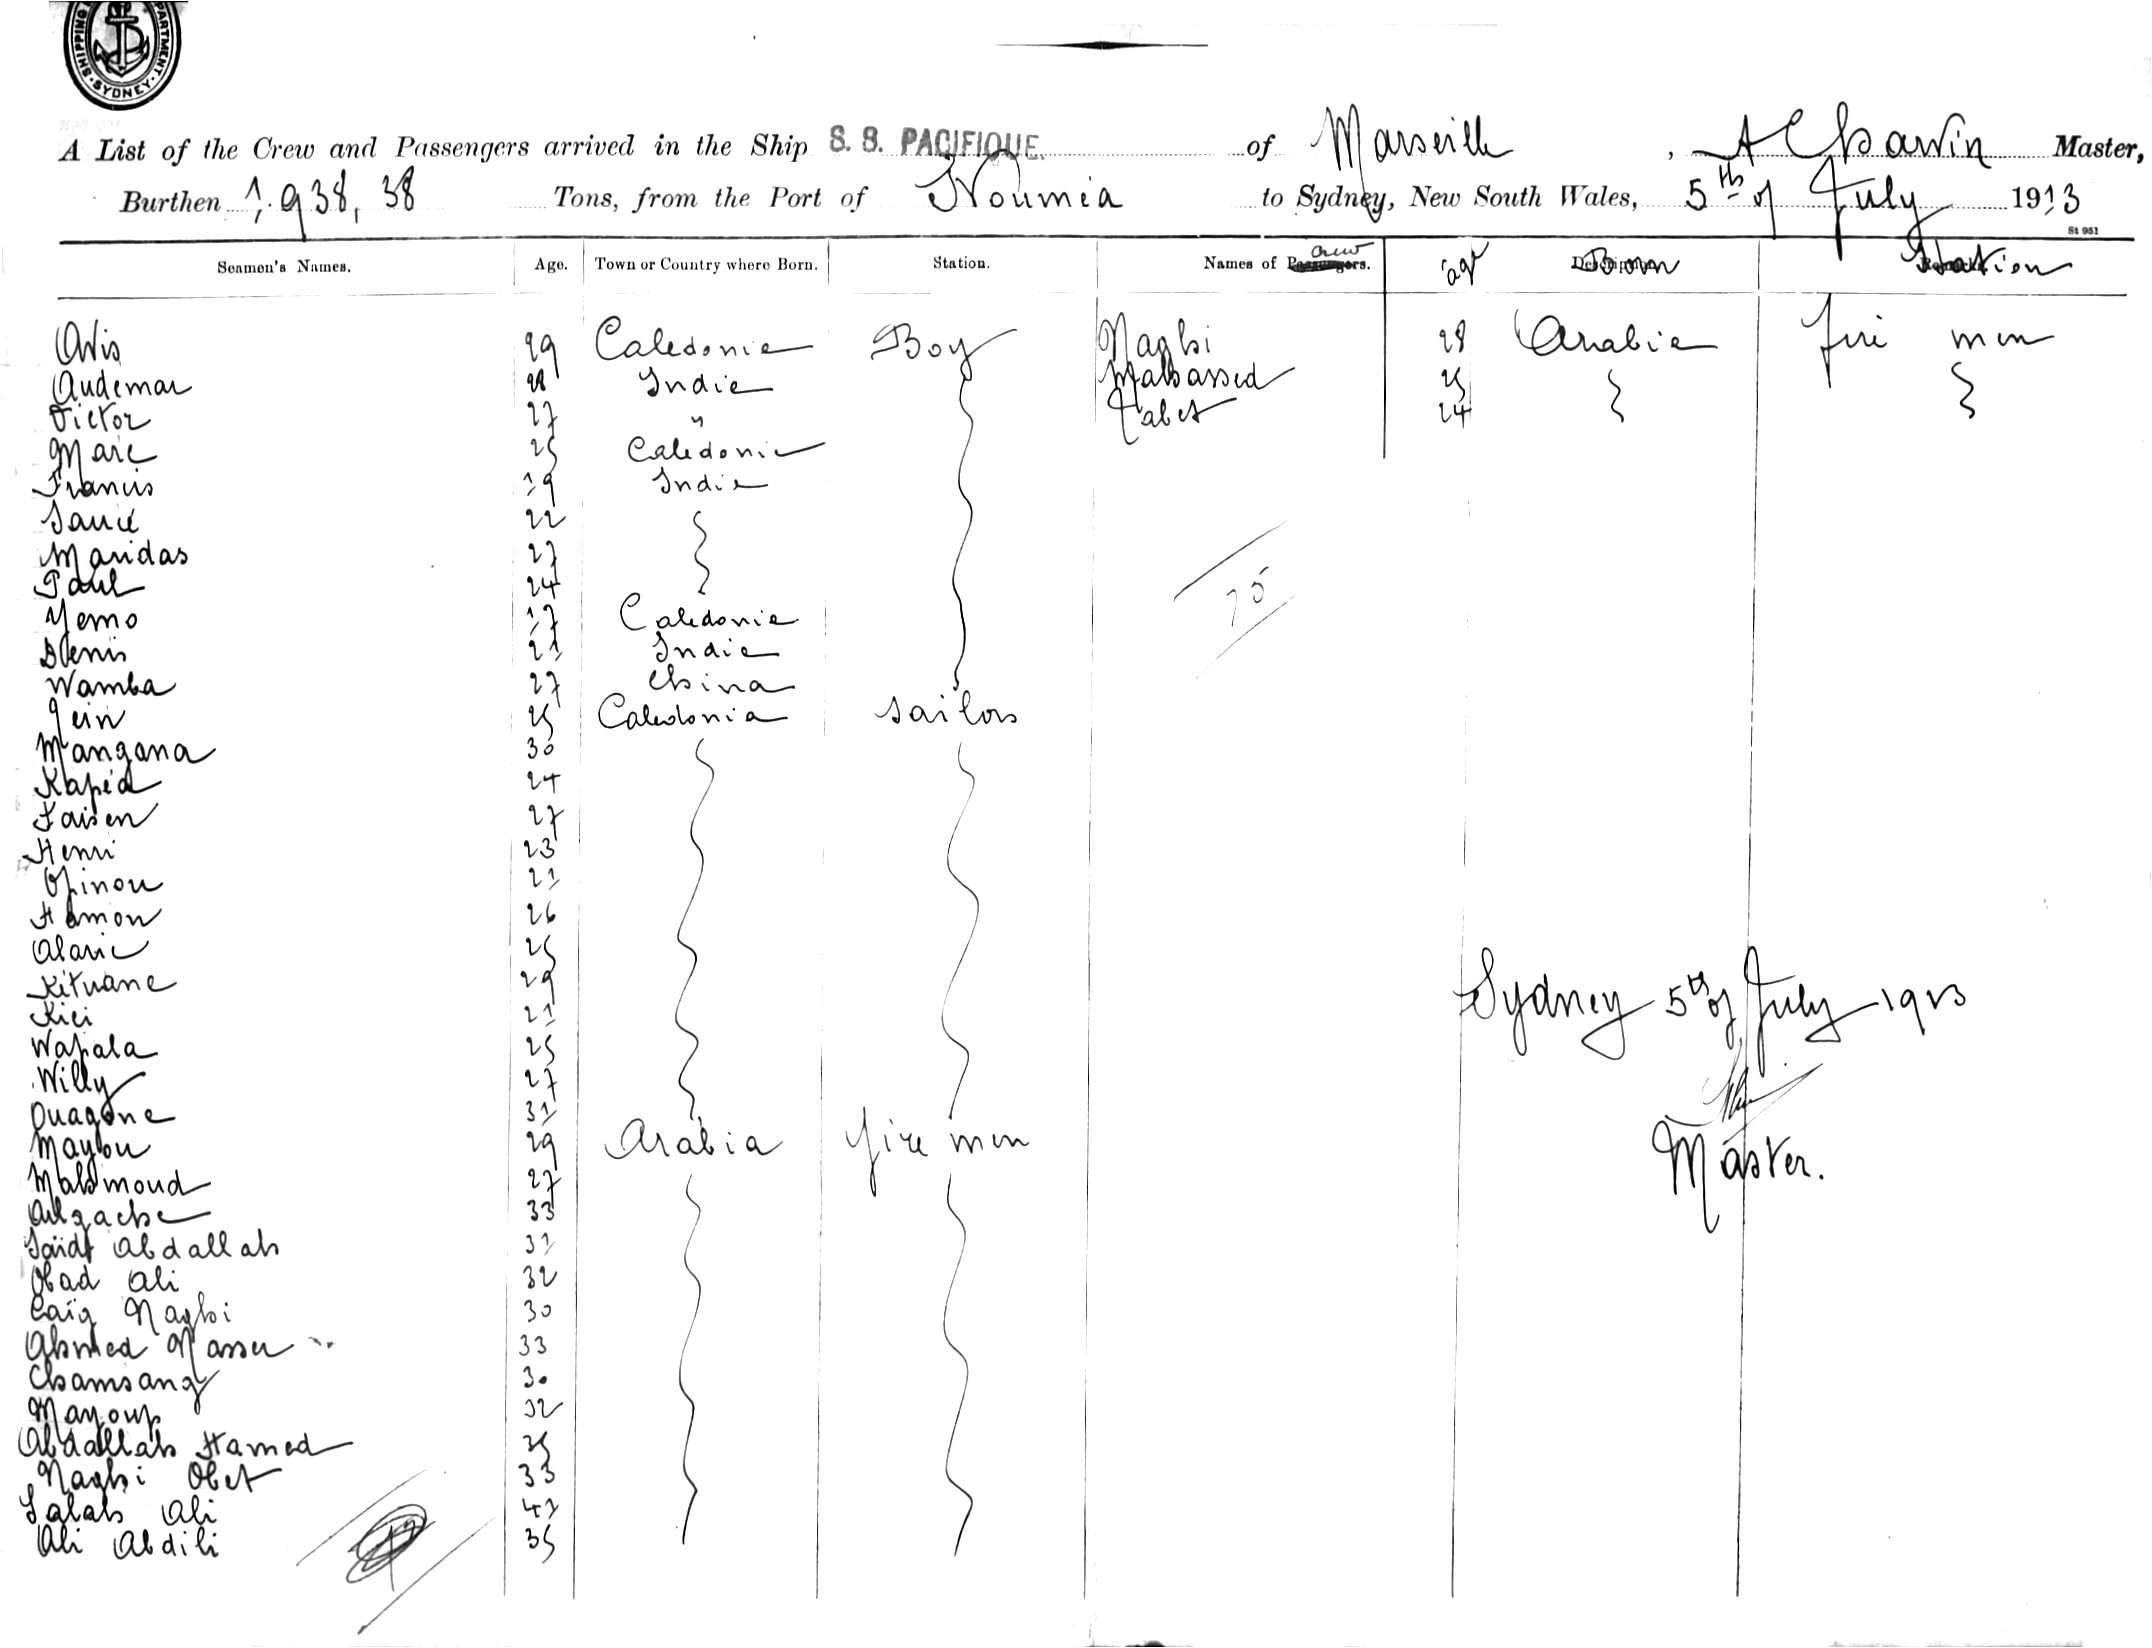 SHIPPING DEPARTMENT. SYDNEY
A List of the Crew and Passengers arrived in the Ship S. S. PACIFIQUE. of Marseille, A Chawin Master,
Burthen 1.938,38 Tons, from the Port of Nouméa to Sydney, New South Wales, 5th of July 1913
St 951
Seamen's Names. Age. Town or Country where Born. Station. Names of Passengers. crew age Description Born Remarks Station
Avis 29 Caledonie Boy Naghi 28 Arabie fire men
Audemar 28 Indie Mahassed 25 } }
Victor 27 " Tabet 24
Marc 25 Caledonie
Francis 19 Indie
Saucé 22 }
Maridas 27
Paul 24
Yemo 17 Caledonie
Denis 21 Indie
Wamba 27 China
Jein 25 Caledonia sailors
Mangana 30
Kapéa 24
Faisen 27
Henri 23
Opinou 21
Hamon 26
Alaric 25
Kituane 29
Kici 21
Wapala 25
Willy 27
Ouagone 31
Maybou 29 Arabia fire men
Mahmoud 27
Algache 33
Saïdt Abdallah 31
Obad Ali 32
Caïg Naghi 30
Ahmed Nasser 33
Chamsang 30
Mayoup 32
Abdallah Hamed 35
Naghi Obet 33
Salah Ali 41
Ali Abdili 35
75
Sydney 5th of July 1913
Master.